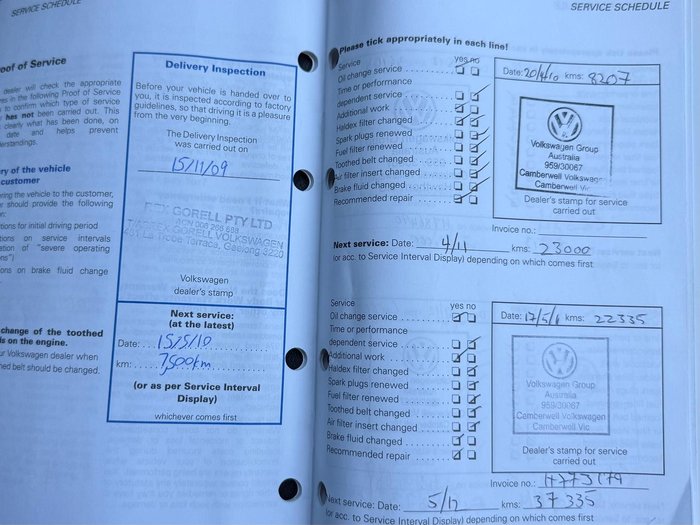 SERVICE SCHEDULE
oof of Service
dealer will check the appropriate
es in the following Proof of Service
to confirm which type of service
has not been carried out. This
clearly what has been done, on
date and helps prevent
erstandings.
ry of the vehicle
customer
ring the vehicle to the customer,
er should provide the following
n:
tions for initial driving period
tions on service intervals
ation of "severe operating
ons")
ons on brake fluid change
change of the toothed
ls on the engine.
ur Volkswagen dealer when
hed belt should be changed.
Delivery Inspection
Before your vehicle is handed over to
you, it is inspected according to factory
guidelines, so that driving it is a pleasure
from the very beginning.
The Delivery Inspection
was carried out on
15/11/09
REX GORELL PTY LTD
REX GORELL VOLKSWAGEN
Volkswagen
dealer's stamp
Next service:
(at the latest)
Date: 15/5/10
km: 7500km
(or as per Service Interval
Display)
whichever comes first
SERVICE SCHEDULE
Please tick appropriately in each line!
Service yes no
Oil change service
Time or performance
dependent service
Additional work
Haldex filter changed
Spark plugs renewed
Fuel filter renewed
Toothed belt changed
Air filter insert changed
Brake fluid changed
Recommended repair
Date: 20/4/10 kms: 8207
Volkswagen Group
Australia
959/30067
Camberwell Volkswagen
Camberwell Vic
Dealer's stamp for service
carried out
Invoice no.:
Next service: Date: 4/11 kms: 23000
(or acc. to Service Interval Display) depending on which comes first
Service yes no
Oil change service
Time or performance
dependent service
Additional work
Haldex filter changed
Spark plugs renewed
Fuel filter renewed
Toothed belt changed
Air filter insert changed
Brake fluid changed
Recommended repair
Date: 17/5/11 kms: 22335
Volkswagen Group
Australia
959/30067
Camberwell Volkswagen
Camberwell Vic
Dealer's stamp for service
carried out
Invoice no.:
Next service: Date: 5/12 kms: 37335
(or acc. to Service Interval Display) depending on which comes first